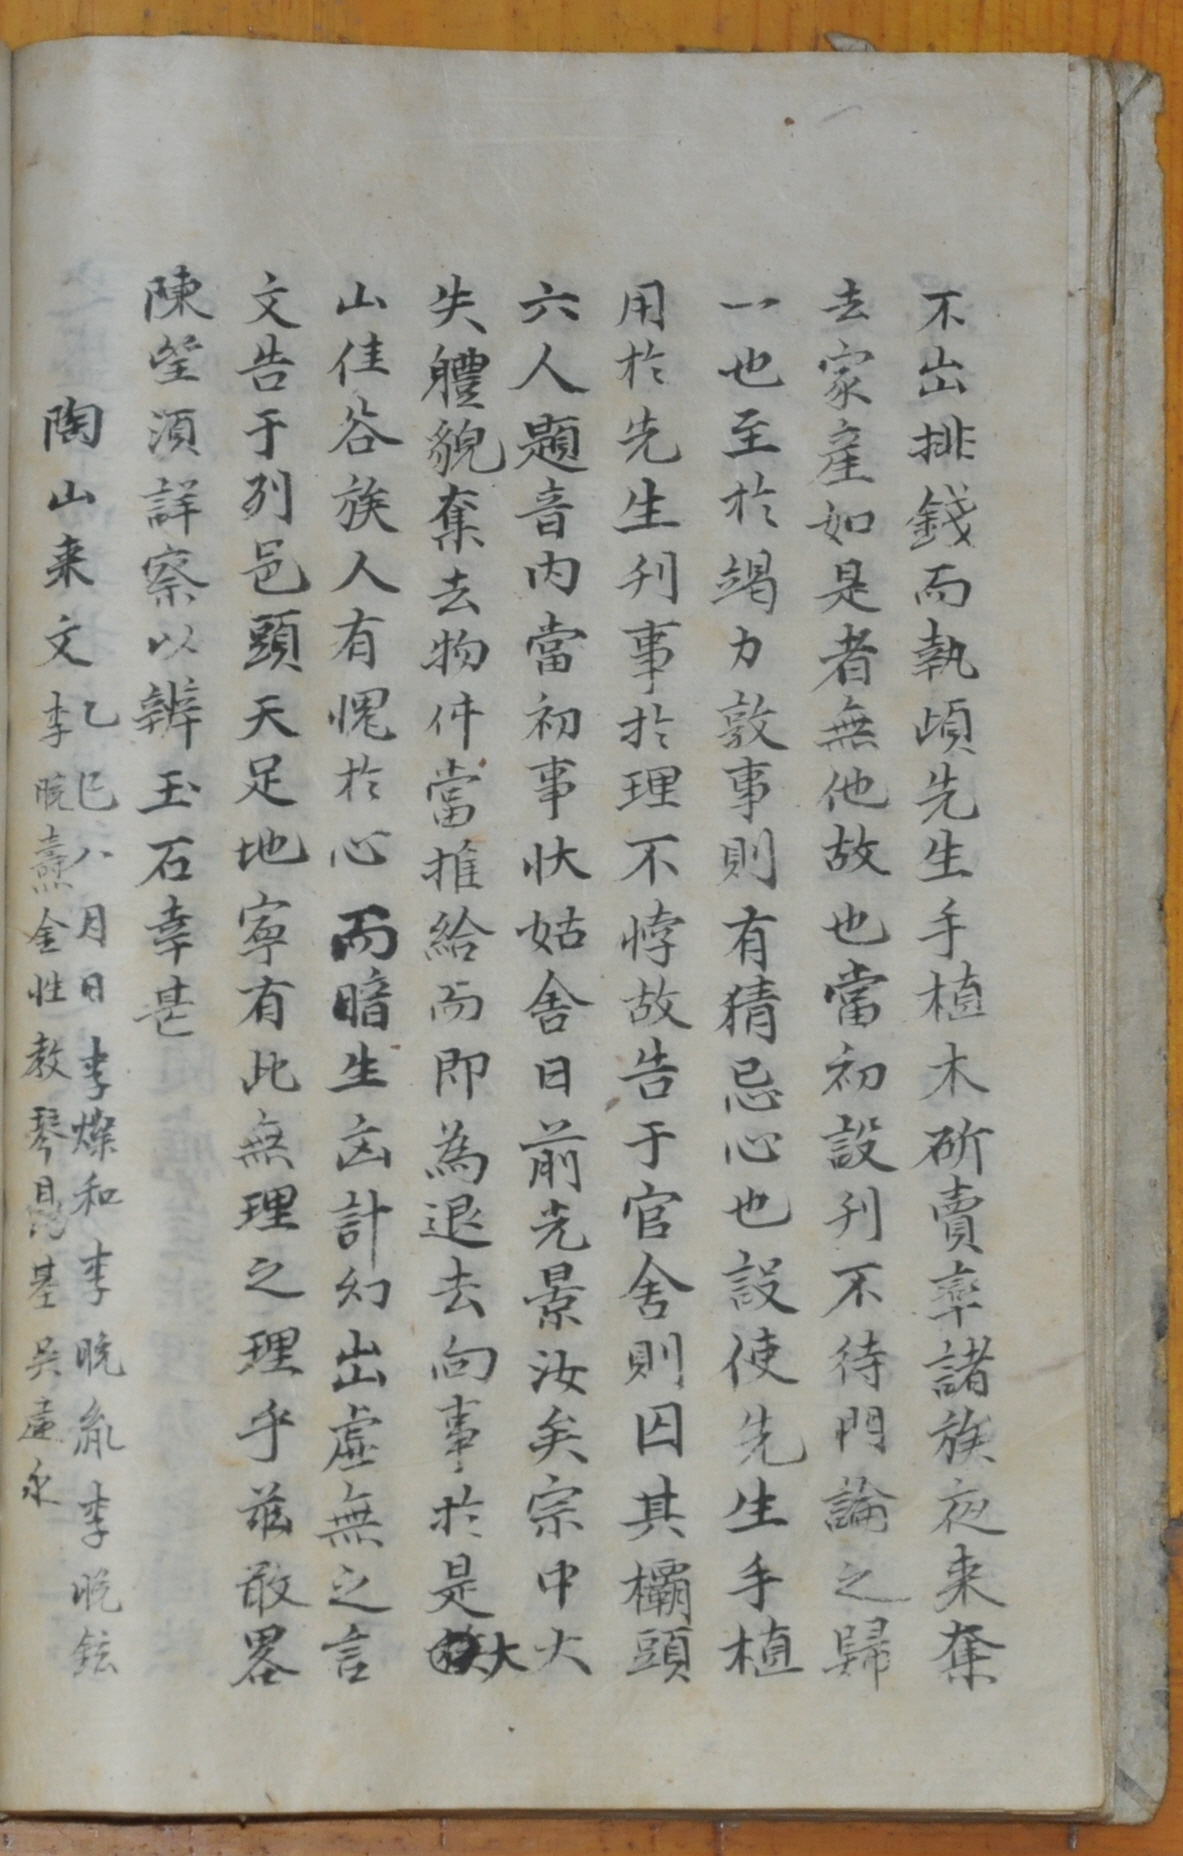 不出排錢而執頉先生手植木斫賣率諸族夜来奪
去家産如是者無他故也當初設刋不待門論之歸
一也至於竭力敦事則有猜忌心也設使先生手植
用於先生刋事於理不悖故告于官舍則囚其欛頭
六人題音內當初事状姑舍日前光景汝矣宗中大
失軆貌奪去物件當推給而即為退去向事於是大
山佳谷族人有愧於心而暗生凶計幻出虛無之言
文告于列邑頭天足地寧有此無理之理乎茲敢畧
陳望須詳察以辨玉石幸甚
陶山来文
乙巳六月日李燦和李晩胤李晩鉉
李晩燾金性教琴基吳永